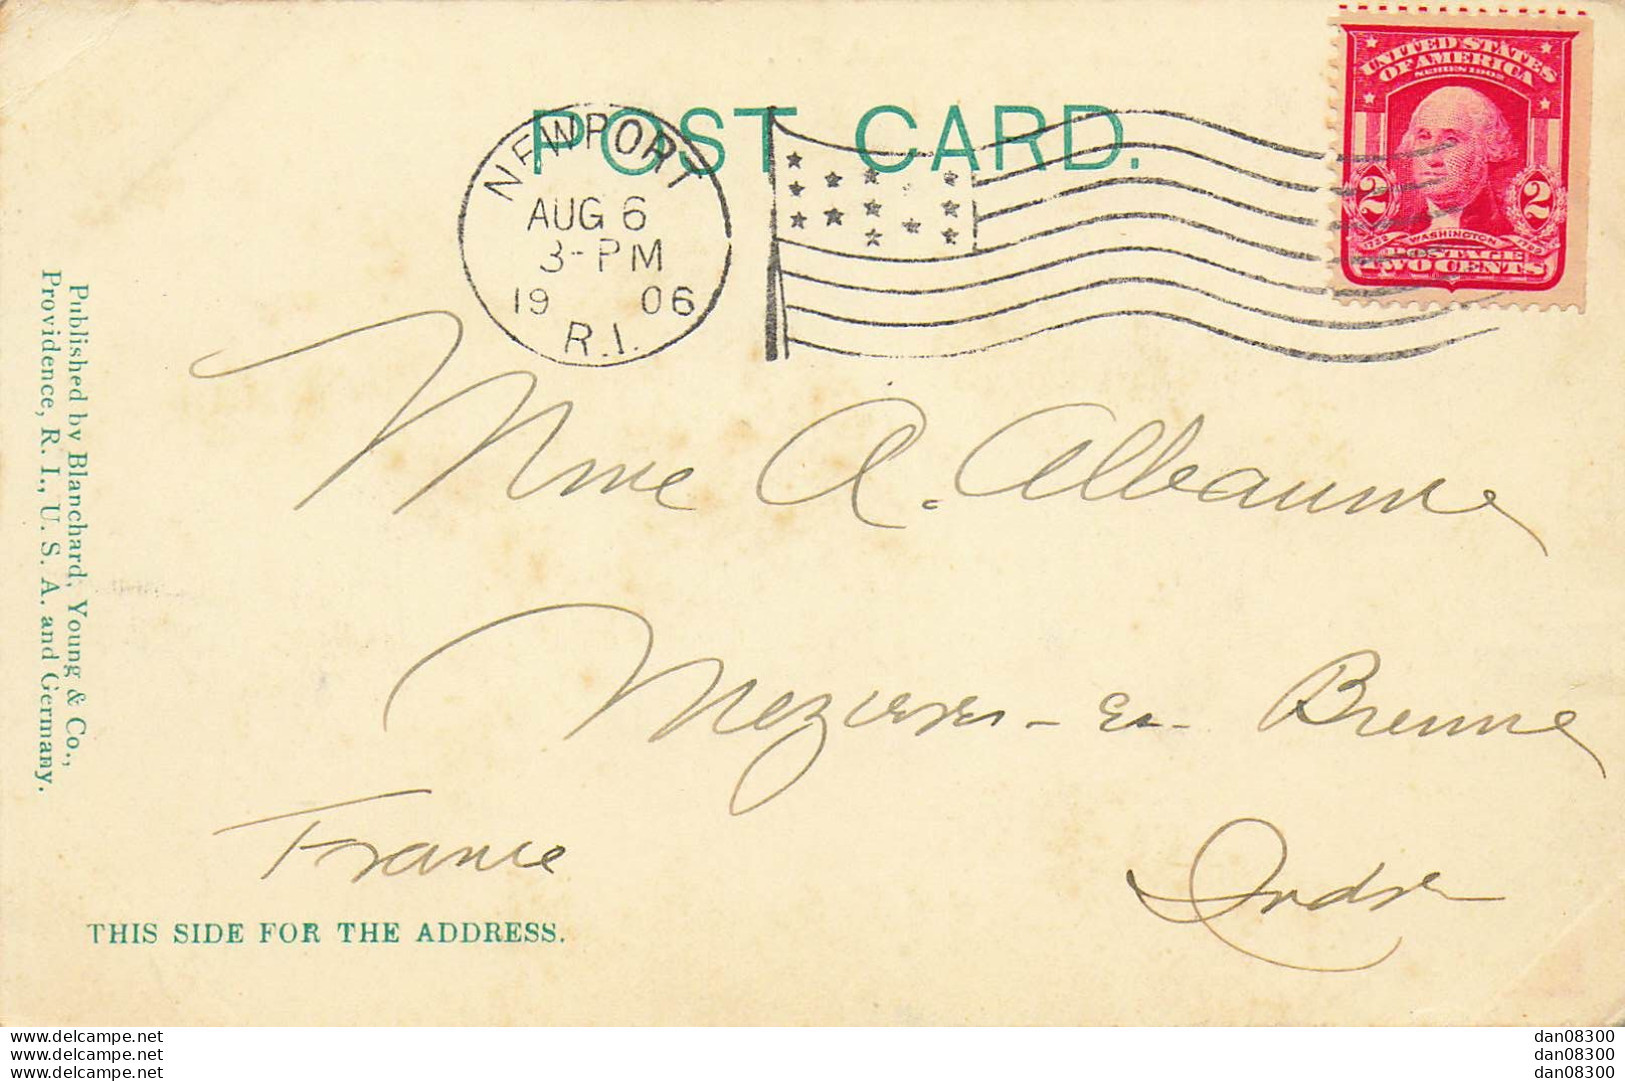 POST CARD.
NEWPORT
AUG 6
3-PM
1906
R.I.
UNITED STATES
OF AMERICA
SERIES 1902
2 2
1732 WASHINGTON 1799
POSTAGE
TWO CENTS
Mme A. Alleaume
Mezieres-en-Brenne
France
Indre
Published by Blanchard, Young & Co.,
Providence, R. I., U. S. A. and Germany.
THIS SIDE FOR THE ADDRESS.
delcampe.net
delcampe.net
delcampe.net
dan08300
dan08300
dan08300